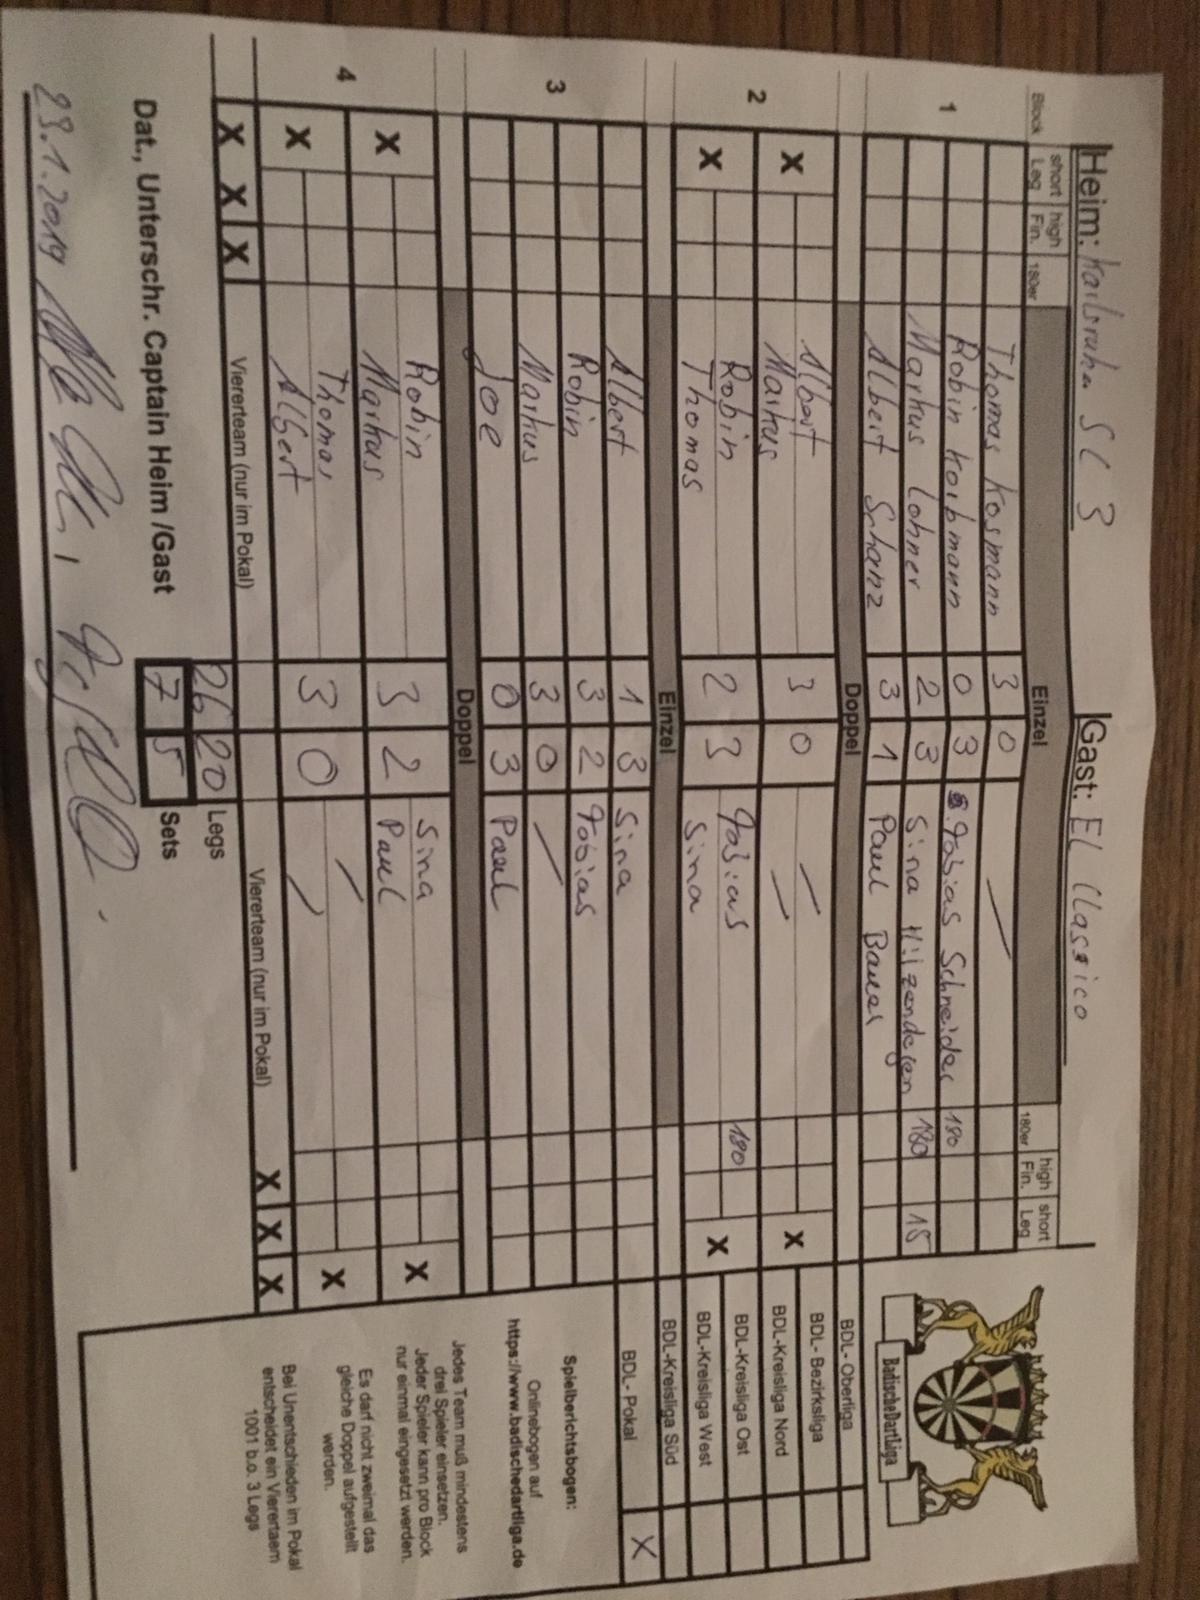 Heim: Karlsruher SC 3 Gast: EL Classico
Block short Leg high Fin. 180er Einzel 180er high Fin. short Leg
1
Thomas Kosmann 3 0 —
Robin Korbmann 0 3 Tobias Schneider 180
Markus Lohner 2 3 Sina Hilzendegen 180 15
Albert Schanz 3 1 Paul Bauer
Doppel
2
X Albert 3 0 — X
Markus —
X Robin 2 3 Tobias 180 X
Thomas Sina
Einzel
3
Albert 1 3 Sina
Robin 3 2 Tobias
Markus 3 0 —
Joe 0 3 Paul
Doppel
4
X Robin 3 2 Sina X
Markus Paul
X Thomas 3 0 — X
Albert —
X X X Viererteam (nur im Pokal) Viererteam (nur im Pokal) X X X
26 20 Legs
Dat., Unterschr. Captain Heim /Gast 7 5 Sets
23.1.2019
BadischeDartLiga
BDL- Oberliga
BDL- Bezirksliga
BDL-Kreisliga Nord
BDL-Kreisliga Ost
BDL-Kreisliga West
BDL-Kreisliga Süd
BDL- Pokal X
Spielberichtsbogen:
Onlinebogen auf
https://www.badischedartliga.de
Jedes Team muß mindestens
drei Spieler einsetzen.
Jeder Spieler kann pro Block
nur einmal eingesetzt werden.
Es darf nicht zweimal das
gleiche Doppel aufgestellt
werden.
Bei Unentschieden im Pokal
entscheidet ein Viererteam
1001 b.o. 3 Legs